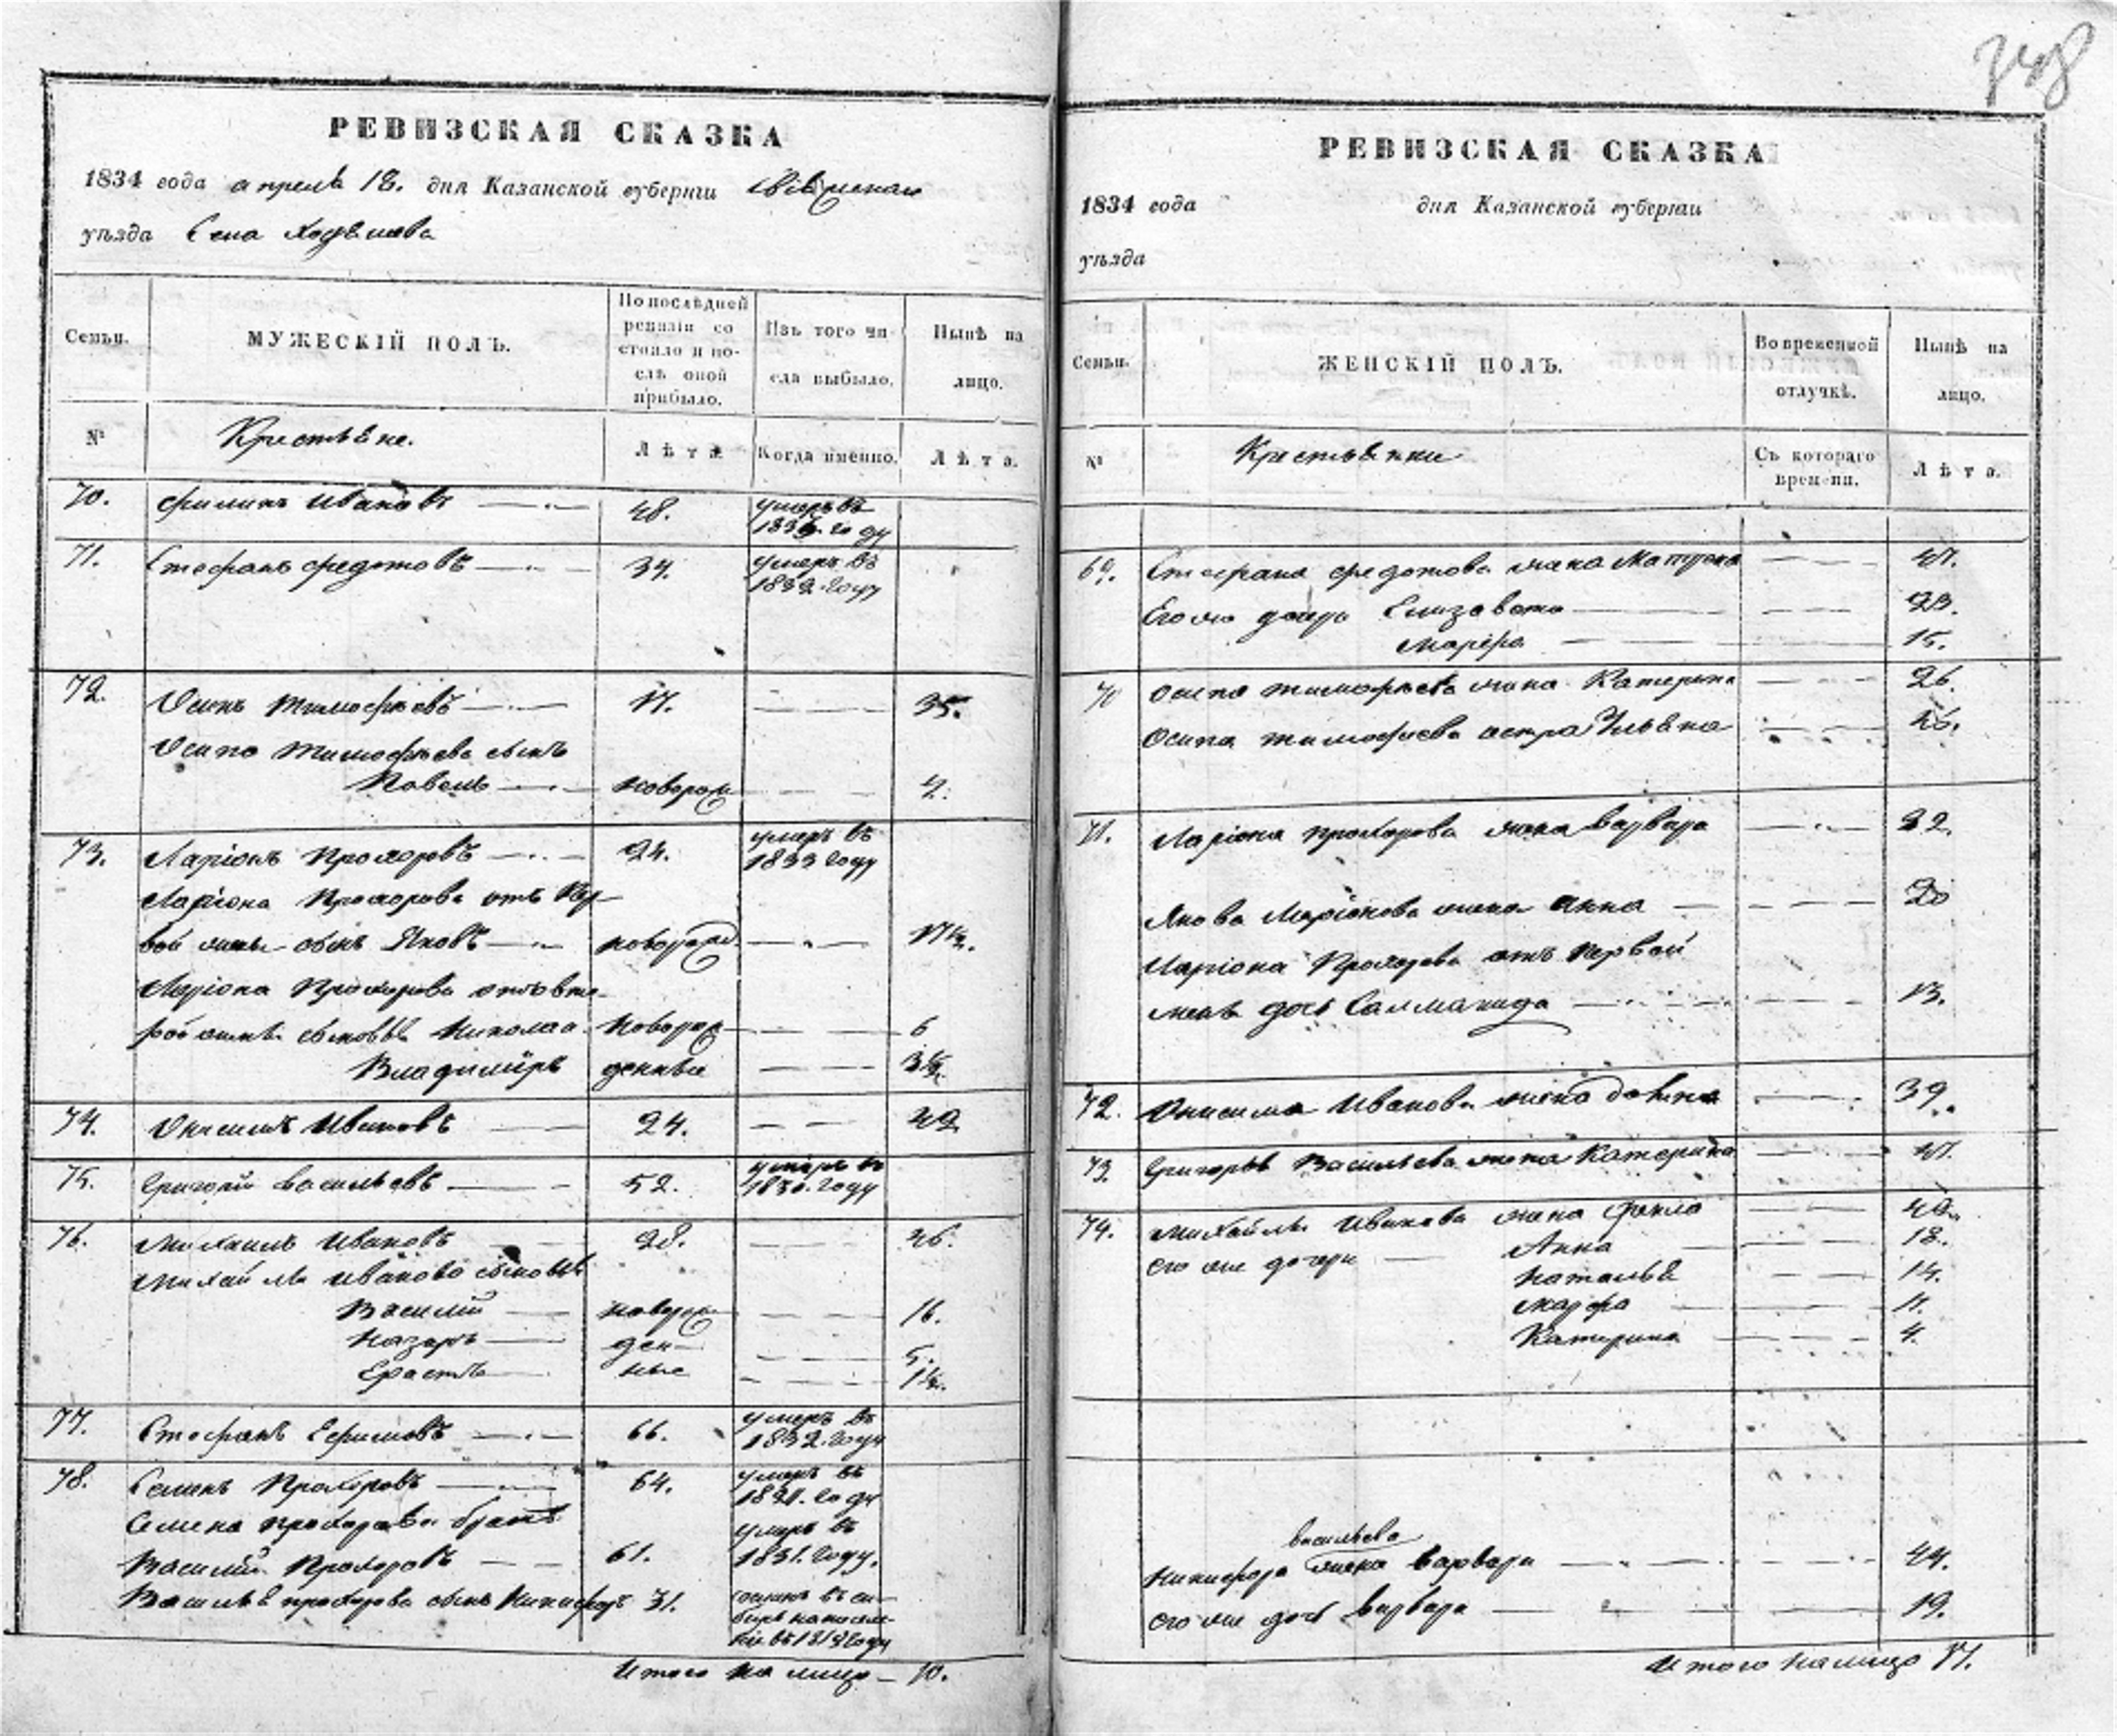 РЕВИЗСКАЯ СКАЗКА
1834 года апреля 18. дня Казанской губернiи
уѣзда Села
Семьи.
МУЖЕСКIЙ ПОЛЪ.
По послѣдней ревизiи состояло и послѣ оной прибыло.
Изъ того числа выбыло.
Нынѣ на лицо.
№
Крестьяне.
Лѣта
Когда именно.
Лѣта.
70. Филипъ Ивановъ 48. умеръ въ
году
71. Стефанъ Федотовъ 34. умеръ въ
1832 году
72. Осипъ Тимофѣевъ 17. 35.
Осипа Тимофѣева сынъ
Павелъ новорож 4.
73. Ларiонъ Прохоровъ 24. умеръ въ
1833 году
Ларiона Прохорова отъ пер-
вой жены сынъ Яковъ новорожд 17½.
Ларiона Прохорова отъ вто-
рой жены сыновья Николай новорож 6
Владимiръ денные 3½.
74. Онисимъ Ивановъ 24. 42
75. Григорiй Васильевъ 52. умеръ въ
1830. году
76. Михаилъ Ивановъ 28. 46.
Михайлы Иванова сыновья
Василiй новорож 16.
Назаръ ден- 5.
Ерастъ ные 1½.
77. Стефанъ Ефимовъ 66. умеръ въ
1832. году
78. Семенъ Прохоровъ 64. умеръ въ
1821. году
Семена Прохорова братъ умеръ въ
Василiй Прохоровъ 61. 1831. году.
Василья Прохорова сынъ Никифоръ 31. сосланъ въ си-
бирь на поселе-
нiе въ году
Итого на лицо 10.
РЕВИЗСКАЯ СКАЗКА
1834 года дня Казанской губернiи
уѣзда
Семьи.
ЖЕНСКIЙ ПОЛЪ.
Во временной отлучкѣ.
Нынѣ на лицо.
№
Крестьянки
Съ котораго времени.
Лѣта.
69. Стефана Федотова жена Матрена 47.
Его же дочери Елизавета 23.
Марфа 15.
70 Осипа Тимофѣева жена Катерина 26.
Осипа Тимофеева сестра Ульяна
71. Ларiона Прохорова жена Варвара 32.
Якова Ларiонова жена Анна 20
Ларiона Прохорова отъ первой
жены дочь Саломанида 13.
72. Онисима Иванова жена 39.
73. Григорья Васильева жена Катерина 47.
74. Михайлы Иванова жена Фекла
его же дочери Анна 18.
Наталья 14.
Марфа 11.
Катерина 4.
васильева
Никифора жена Варвара 44.
его же дочь Варвара 19.
Итого налицо 17.